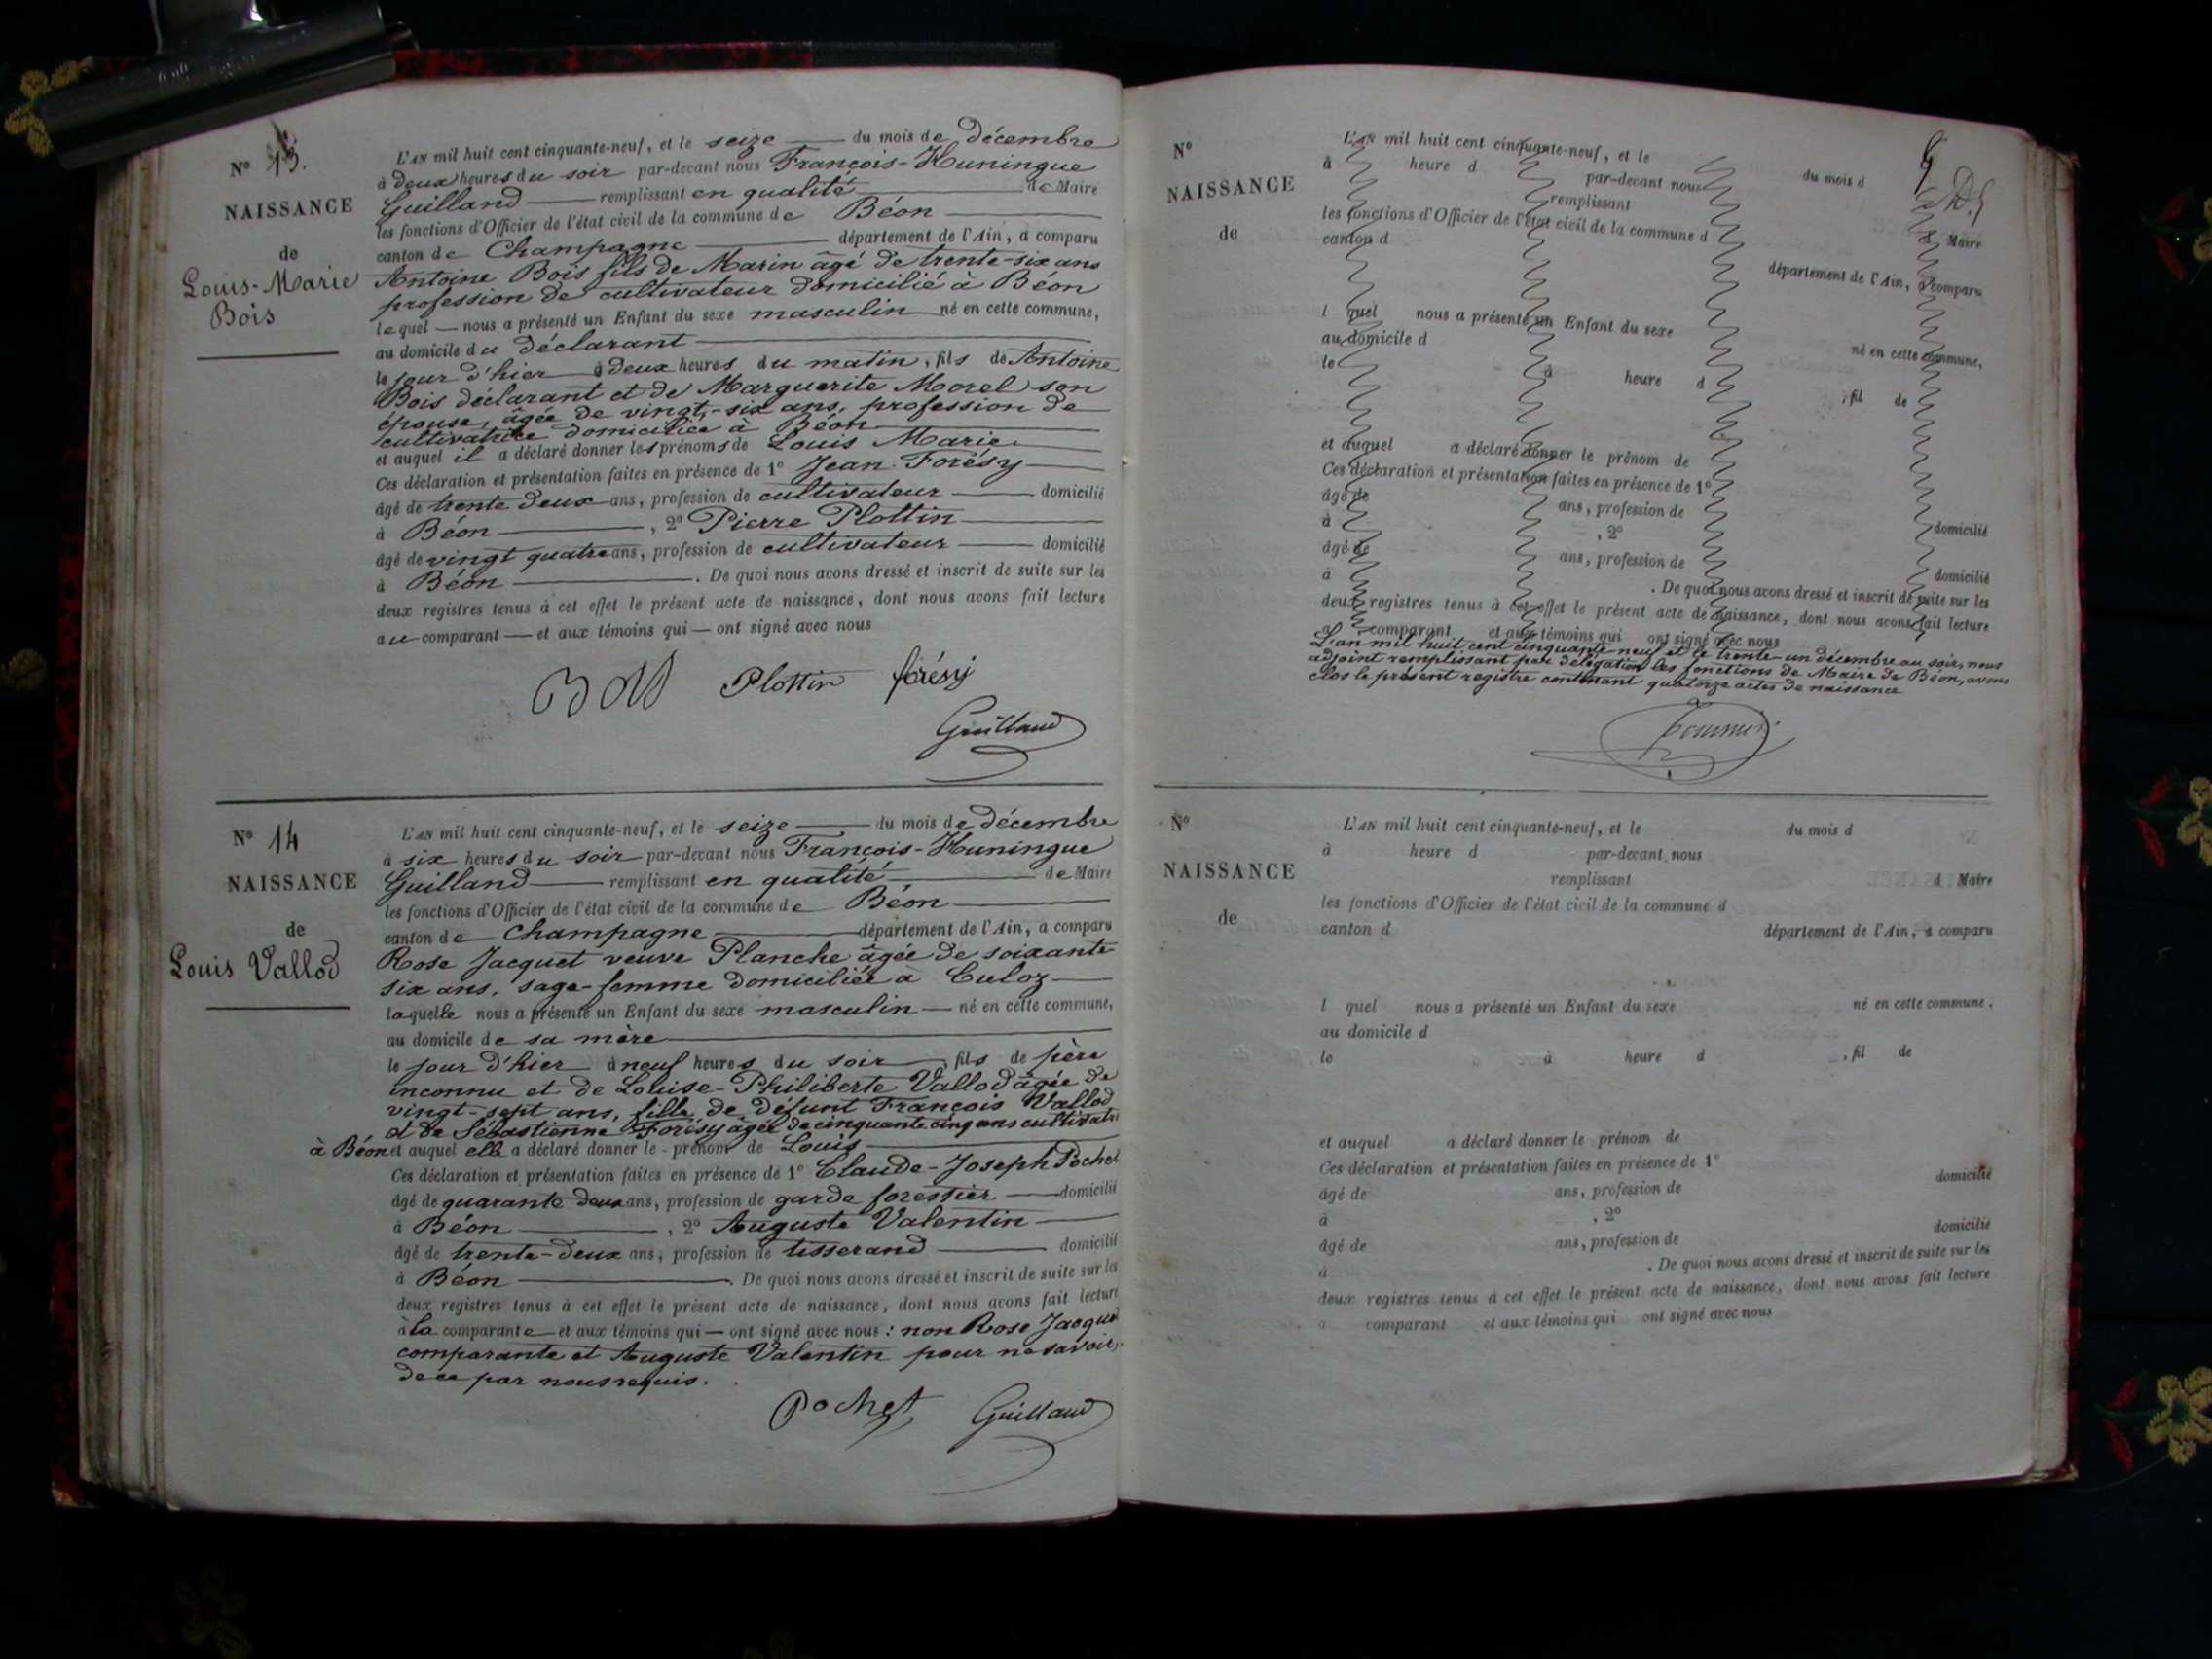 N° 13.
NAISSANCE
de
Louis-Marie
Bois
L'AN mil huit cent cinquante-neuf, et le seize du mois de décembre
à deux heures du soir par-devant nous François-Huningue
Guilland remplissant en qualité de Maire
les fonctions d'Officier de l'état civil de la commune de Béon
canton de Champagne département de l'Ain, a comparu
Antoine Bois fils de Marin âgé de trente-six ans
profession de cultivateur domicilié à Béon
lequel nous a présenté un Enfant du sexe masculin né en cette commune,
au domicile du déclarant
le jour d'hier à deux heures du matin, fils de Antoine
Bois déclarant et de Marguerite Morel son
épouse, âgée de vingt-six ans, profession de
cultivatrice domiciliée à Béon
et auquel il a déclaré donner les prénoms de Louis Marie
Ces déclaration et présentation faites en présence de 1° Jean Forésy
âgé de trente deux ans, profession de cultivateur domicilié
à Béon , 2° Pierre Plottin
âgé de vingt quatre ans, profession de cultivateur domicilié
à Béon . De quoi nous avons dressé et inscrit de suite sur les
deux registres tenus à cet effet le présent acte de naissance, dont nous avons fait lecture
au comparant et aux témoins qui ont signé avec nous
Bois Plottin forésy
Guilland
N° 14
NAISSANCE
de
Louis Vallod
L'AN mil huit cent cinquante-neuf, et le seize du mois de décembre
à six heures du soir par-devant nous François-Huningue
Guilland remplissant en qualité de Maire
les fonctions d'Officier de l'état civil de la commune de Béon
canton de Champagne département de l'Ain, a comparu
Rose Jacquet veuve Planche âgée de soixante
six ans, sage-femme domiciliée à Culoz
laquelle nous a présenté un Enfant du sexe masculin né en cette commune,
au domicile de sa mère
le jour d'hier à neuf heures du soir, fils de père
inconnu et de Louise-Philiberte Vallod âgée de
vingt-sept ans, fille de défunt François Vallod
et de Sébastienne Forésy âgée de cinquante cinq ans cultivatri
à Béon et auquel elle a déclaré donner le - prénom de Louis
Ces déclaration et présentation faites en présence de 1° Claude-Joseph Pochet
âgé de quarante deux ans, profession de garde forestier domicilié
à Béon , 2° Auguste Valentin
âgé de trente-deux ans, profession de tisserand domicilié
à Béon . De quoi nous avons dressé et inscrit de suite sur les
deux registres tenus à cet effet le présent acte de naissance, dont nous avons fait lecture
à la comparante et aux témoins qui ont signé avec nous : non Rose Jacquet
comparante et Auguste Valentin pour ne savoir,
de ce par nous requis.
Pochet Guilland
N°
NAISSANCE
de
L'AN mil huit cent cinquante-neuf, et le du mois d
à heure d par-devant nous
remplissant d Maire
les fonctions d'Officier de l'état civil de la commune d
canton d département de l'Ain, a comparu
l quel nous a présenté un Enfant du sexe né en cette commune,
au domicile d
le à heure d , fil de
et auquel a déclaré donner le prénom de
Ces déclaration et présentation faites en présence de 1°
âgé de ans, profession de domicilié
à , 2°
âgé de ans, profession de domicilié
à . De quoi nous avons dressé et inscrit de suite sur les
deux registres tenus à cet effet le présent acte de naissance, dont nous avons fait lecture
a comparant et aux témoins qui ont signé avec nous
L'an mil huit cent cinquante neuf et le trente-un décembre au soir, nous
adjoint remplissant par délégation les fonctions de Maire de Béon, avons
clos le présent registre contenant quatorze actes de naissance
N°
NAISSANCE
de
L'AN mil huit cent cinquante-neuf, et le du mois d
à heure d par-devant nous
remplissant d Maire
les fonctions d'Officier de l'état civil de la commune d
canton d département de l'Ain, a comparu
l quel nous a présenté un Enfant du sexe né en cette commune,
au domicile d
le à heure d , fil de
et auquel a déclaré donner le prénom de
Ces déclaration et présentation faites en présence de 1°
âgé de ans, profession de domicilié
à , 2°
âgé de ans, profession de domicilié
à . De quoi nous avons dressé et inscrit de suite sur les
deux registres tenus à cet effet le présent acte de naissance, dont nous avons fait lecture
a comparant et aux témoins qui ont signé avec nous